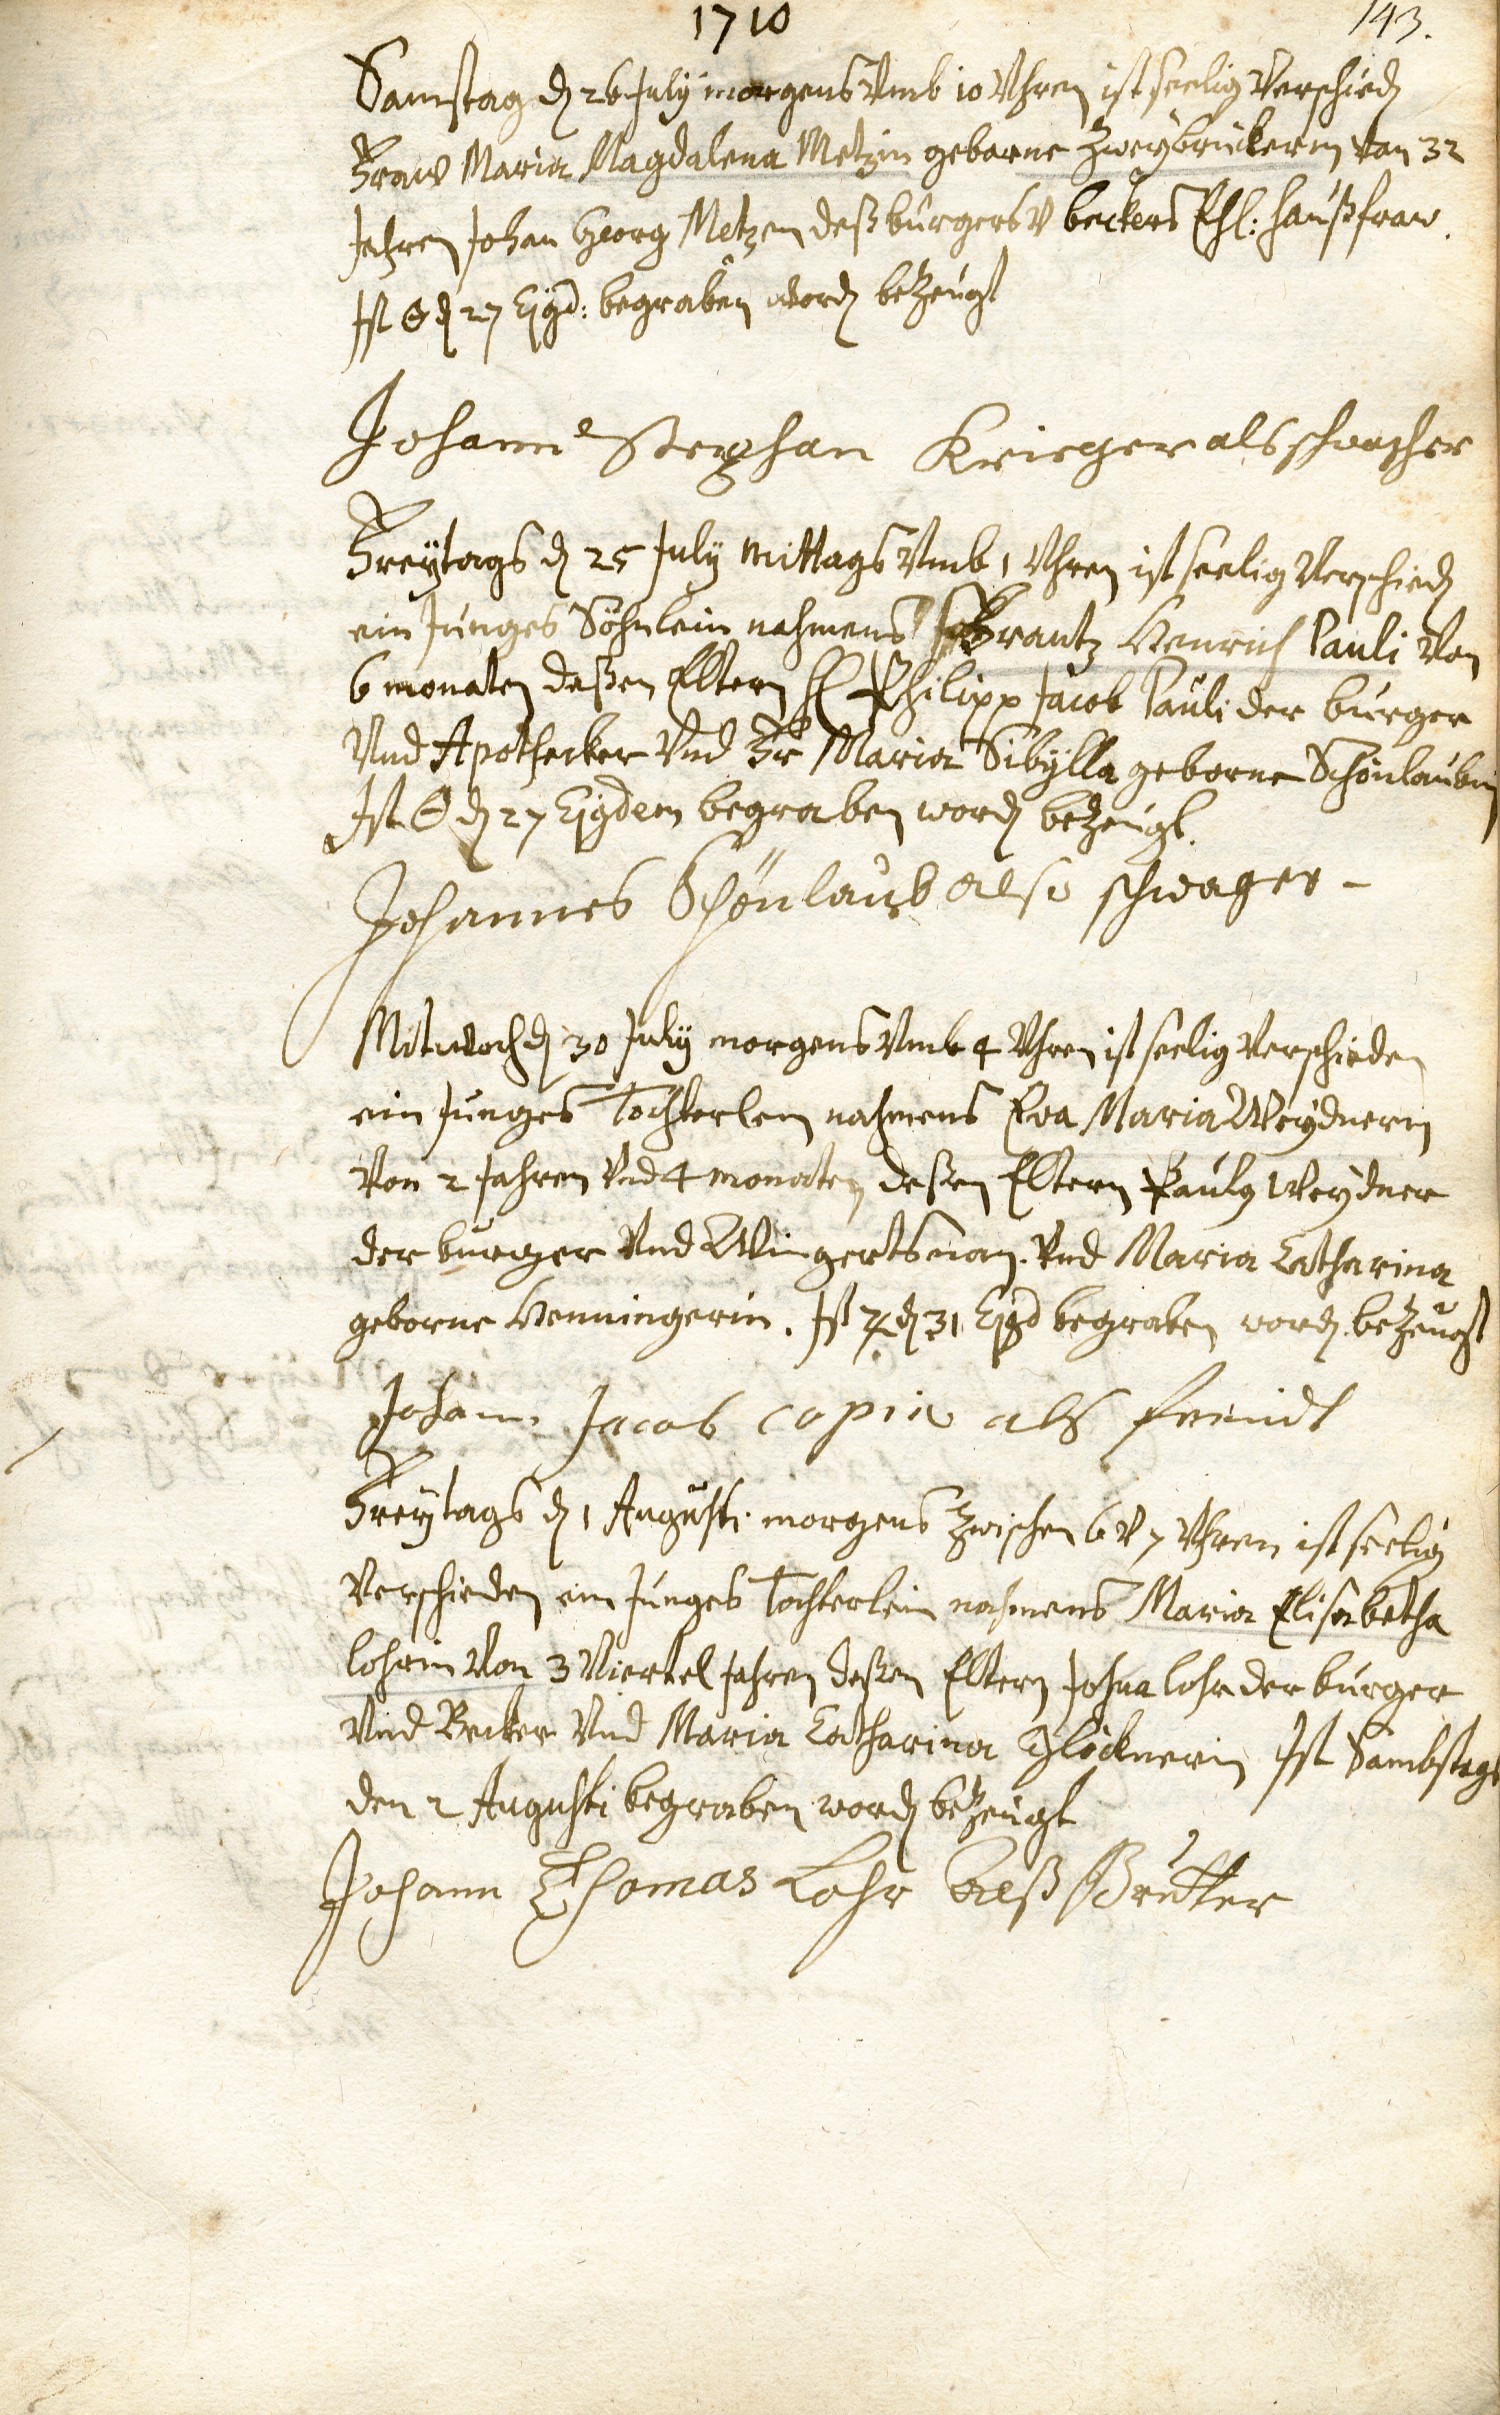 1710
143.
Samstag dn 26 July morgens Vmb 10 Vhren ist seelig Verschiedn
Fraw Maria Magdalena Metzin geborne Zweybrückerin von 32
Jahren Johan Georg Metzen deß burgers V beckers Ehl: haußfraw.
Ist ☉ dn 27 Ejqd: begraben wordn bezeugt
Johann Stephan Krieger als schwoher
Freytags dn 25 July Mittags Vmb 1 Vhren ist seelig Verschiedn
ein Junges Söhnlein nahmens Frantz Henrich Pauli Von
6 monaten deßen Eltern H Philipp Jacob Pauli der burger
Vnd Apothecker Vnd Fr Maria Sibylla geborne Schönlaubin
Ist ☉ dn 27 Ejqdem begraben wordn bezeugt.
Johannes Schönlaub also schwager -
Mitwoch dn 30 July morgens Vmb 4 Vhren ist seelig Verschieden
ein Junges Tochterlein nahmens Eva Maria Weydnerin
Von 2 Jahren Vnd 4 monaten deßen Eltern Paulg Weydner
der burger Vnd Wingertsman. Vnd Maria Catharina
geborne Henningerin. Ist ♃ dn 31 Ejqd begraben wordn bezeugt
Johann Jacob copia als freindt
Freytags dn 1 Augusti morgens Zwischen 6 V 7 Vhren ist seelig
Verschieden ein Junges Tochterlein nahmens Maria Elisabetha
Lohrin Von 3 Viertel Jahren deßen Eltern Johna Lohr der burger
Vnd Becker Vnd Maria Catharina Glöcknerin Ist Sambstags
den 2 Augusti begraben wordn bezeugt
Johann Thomas Lohr Alß Brutter